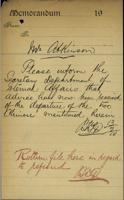 Memorandum 19
Mr Atkinson
Please inform the
department of
Affairs that
advice has now been received
of the departure of the
Chinese mentioned herein
Return file here in regard
to refund